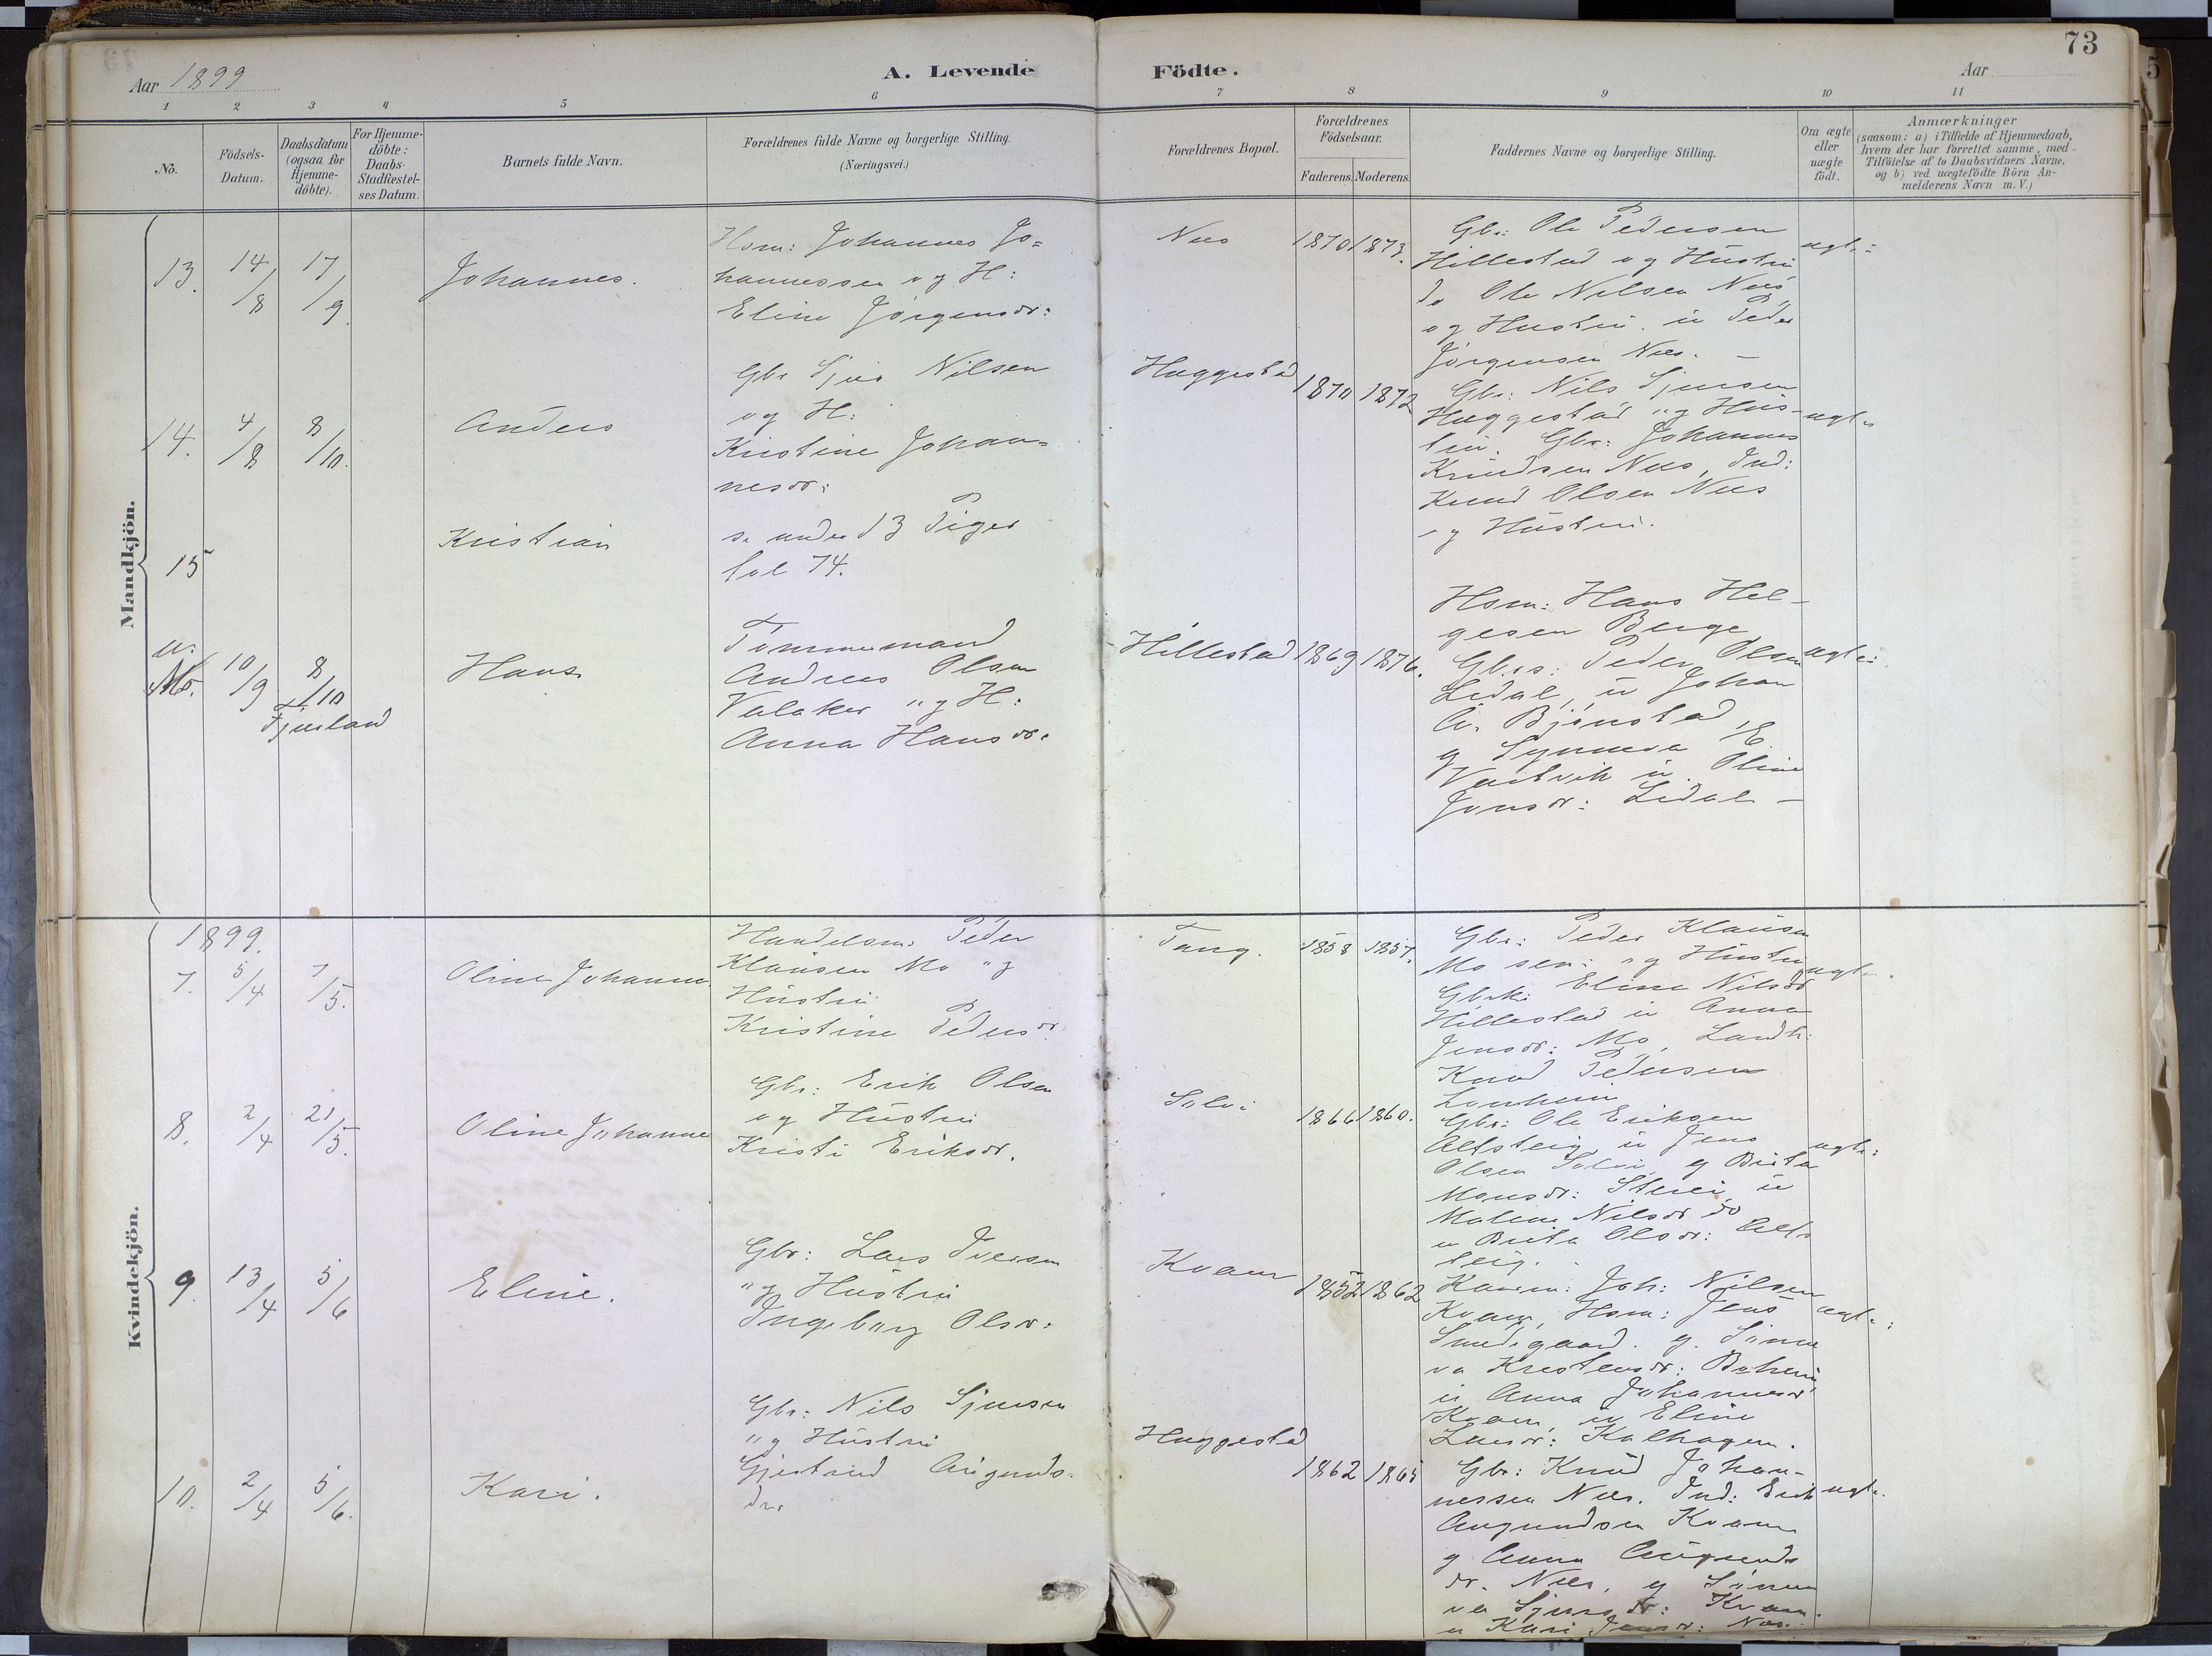 73
Aar 1899
A. Levende Födte.
Aar
1 2 3 4 5 6 7 8 9 10 11
No.
Födsels-Datum.
Daabsdatum (ogsaa for Hjemme-döbte).
For Hjemme-döbte: Daabs-Stadfæstel-ses Datum.
Barnets fulde Navn.
Forældrenes fulde Navne og borgerlige Stilling.
(Næringsvei.)
Forældrenes Bopæl.
Forældrenes Födselsaar.
Faderens. Moderens.
Faddernes Navne og borgerlige Stilling.
Om ægte eller uægte födt.
Anmærkninger
(saasom: a) i Tilfælde af Hjemmedaab,
hvem der har forrettet samme, med
Tilföielse af to Daabsvidners Navne.
og b) ved uægtefödte Börn An-
melderens Navn m. V.)
Mandkjön.
13. 14/8 17/9 Johannes.
Hsm: Johannes Jo=
hannessen og H:
Eline Jørgensdr:
Nes 1870 1873.
Gbr: Ole Pedersen
Hillestad og Hustru
do Ole Nilsen Nes
og Hustru. u Peder
Jørgensen Nes. –
ægte:
14. 4/8 8/10. Anders
Gbr Sjur Nilsen
og H:
Kristine Johan=
nesdr:
Huggestad 1870 1872
Gbr: Nils Sjursen
Huggestad og Hus-
tru. Gbr: Johannes
Knudsen Nes, Ind:
Knud Olsen Nes
og Hustru.
ægte
15 Kristian
s. under 13 Piger
fol 74.
10/9 8/10 Fjærland Hans
Tømmermand
Andreas Olsen
Valaker og H:
Anna Hansdr.
Hillestad 1869 1876.
Hsm: Hans Hel-
gesen Berge
Gbrs: Peder Olsen
Lidal, u Johan
A. Bjønstad
g Synneva
u. Oline
Jonsdr: Lidal –
ægte:
Kvindekjön.
1899.
7. 5/4 7/5. Oline Johanne
Handelsm: Peder
Klausen Mo og
Hustru
Kristine Pedersdr
Tang. 1858 1857.
Gbr: Peder Klausen
Mo sen: og Hustru
Gbrk: Eline Nilsdr
Hillestad u Anna
Jensdr: Mo, Landh:
Knud Pedersen
ægte.
8. 2/4 21/5. Oline Johanne
Gbr: Erik Olsen
og Hustru
Kristi Eriksdr.
Sølvi 1866 1860.
Gbr: Ole Eriksen
Alfsteig u Jens
Olsen Sølvi, g Brita
Monsdr: u
Malene Nilsdr do
u Brita Olsdr: Alf
steig.
ægte:
9. 13/4 5/6 Eline.
Gbr: Lars Iversen
og Hustru
Ingeborg Olsdr:
Kvam 1852 1862
Joh: Nilsen
Kvam, Hsm: Jens
Smedegaard. g. Sønne
va Kristensdr:
u Anna Johannesdr
Kvam, u Eline
Larsdr: Kalhagen.
ægte:
10. 2/4 5/6. Kari.
Gbr: Nils Sjursen
og Hustru
Gjertrud Augunds-
dr.
Huggestad 1862 1865
Gbr: Knud Johan-
nessen Nes. Ind: Erik
Augundsen Kvam
g Anna Augunds
dr. Nes, g Sønne
va Sjursdr: Kvam.
u Kari Jensdr: Nes.
ægte.